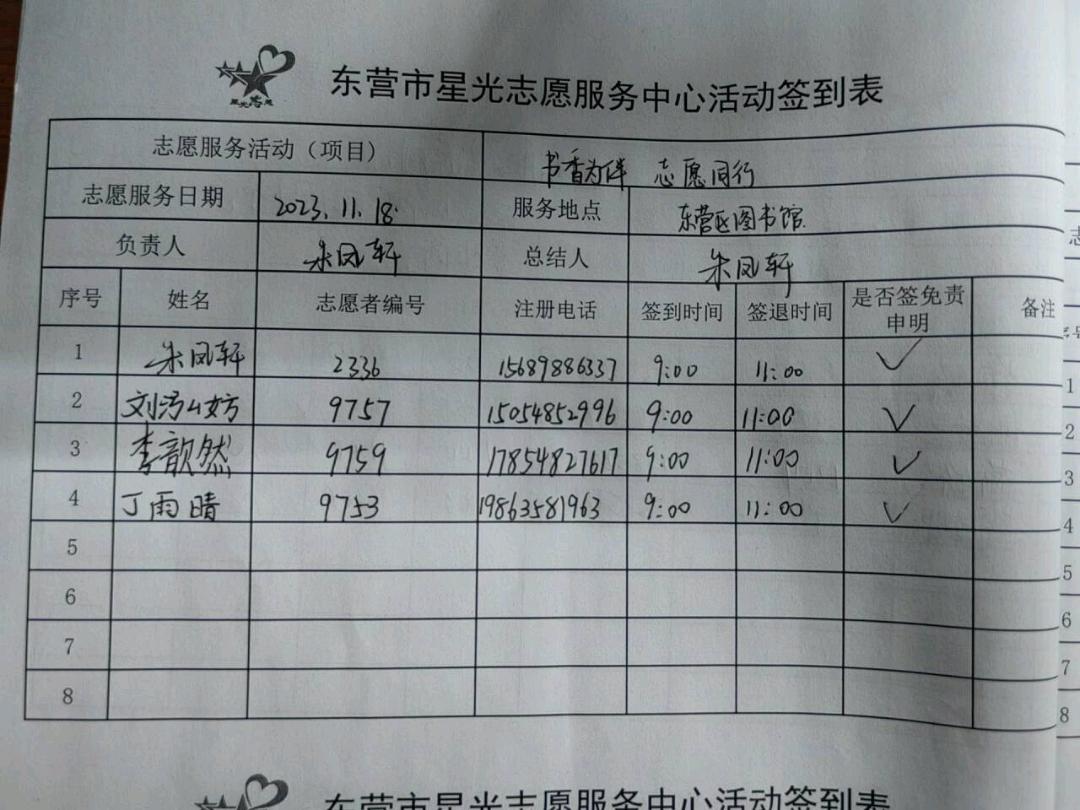 星光志愿
东营市星光志愿服务中心活动签到表
志愿服务活动（项目） 书香为伴 志愿同行
志愿服务日期 2023.11.18. 服务地点 东营区图书馆
负责人 朱凤轩 总结人 朱凤轩
序号 姓名 志愿者编号 注册电话 签到时间 签退时间 是否签免责申明 备注
1 朱凤轩 2336 15689886337 9:00 11:00 ✓
2 刘 9757 15054852996 9:00 11:00 ✓
3 李歆然 9759 17854827617 9:00 11:00 ✓
4 丁雨晴 9753 19863581963 9:00 11:00 ✓
5
6
7
8
东营市星光志愿服务中心活动签到表
1
2
3
4
5
6
7
8